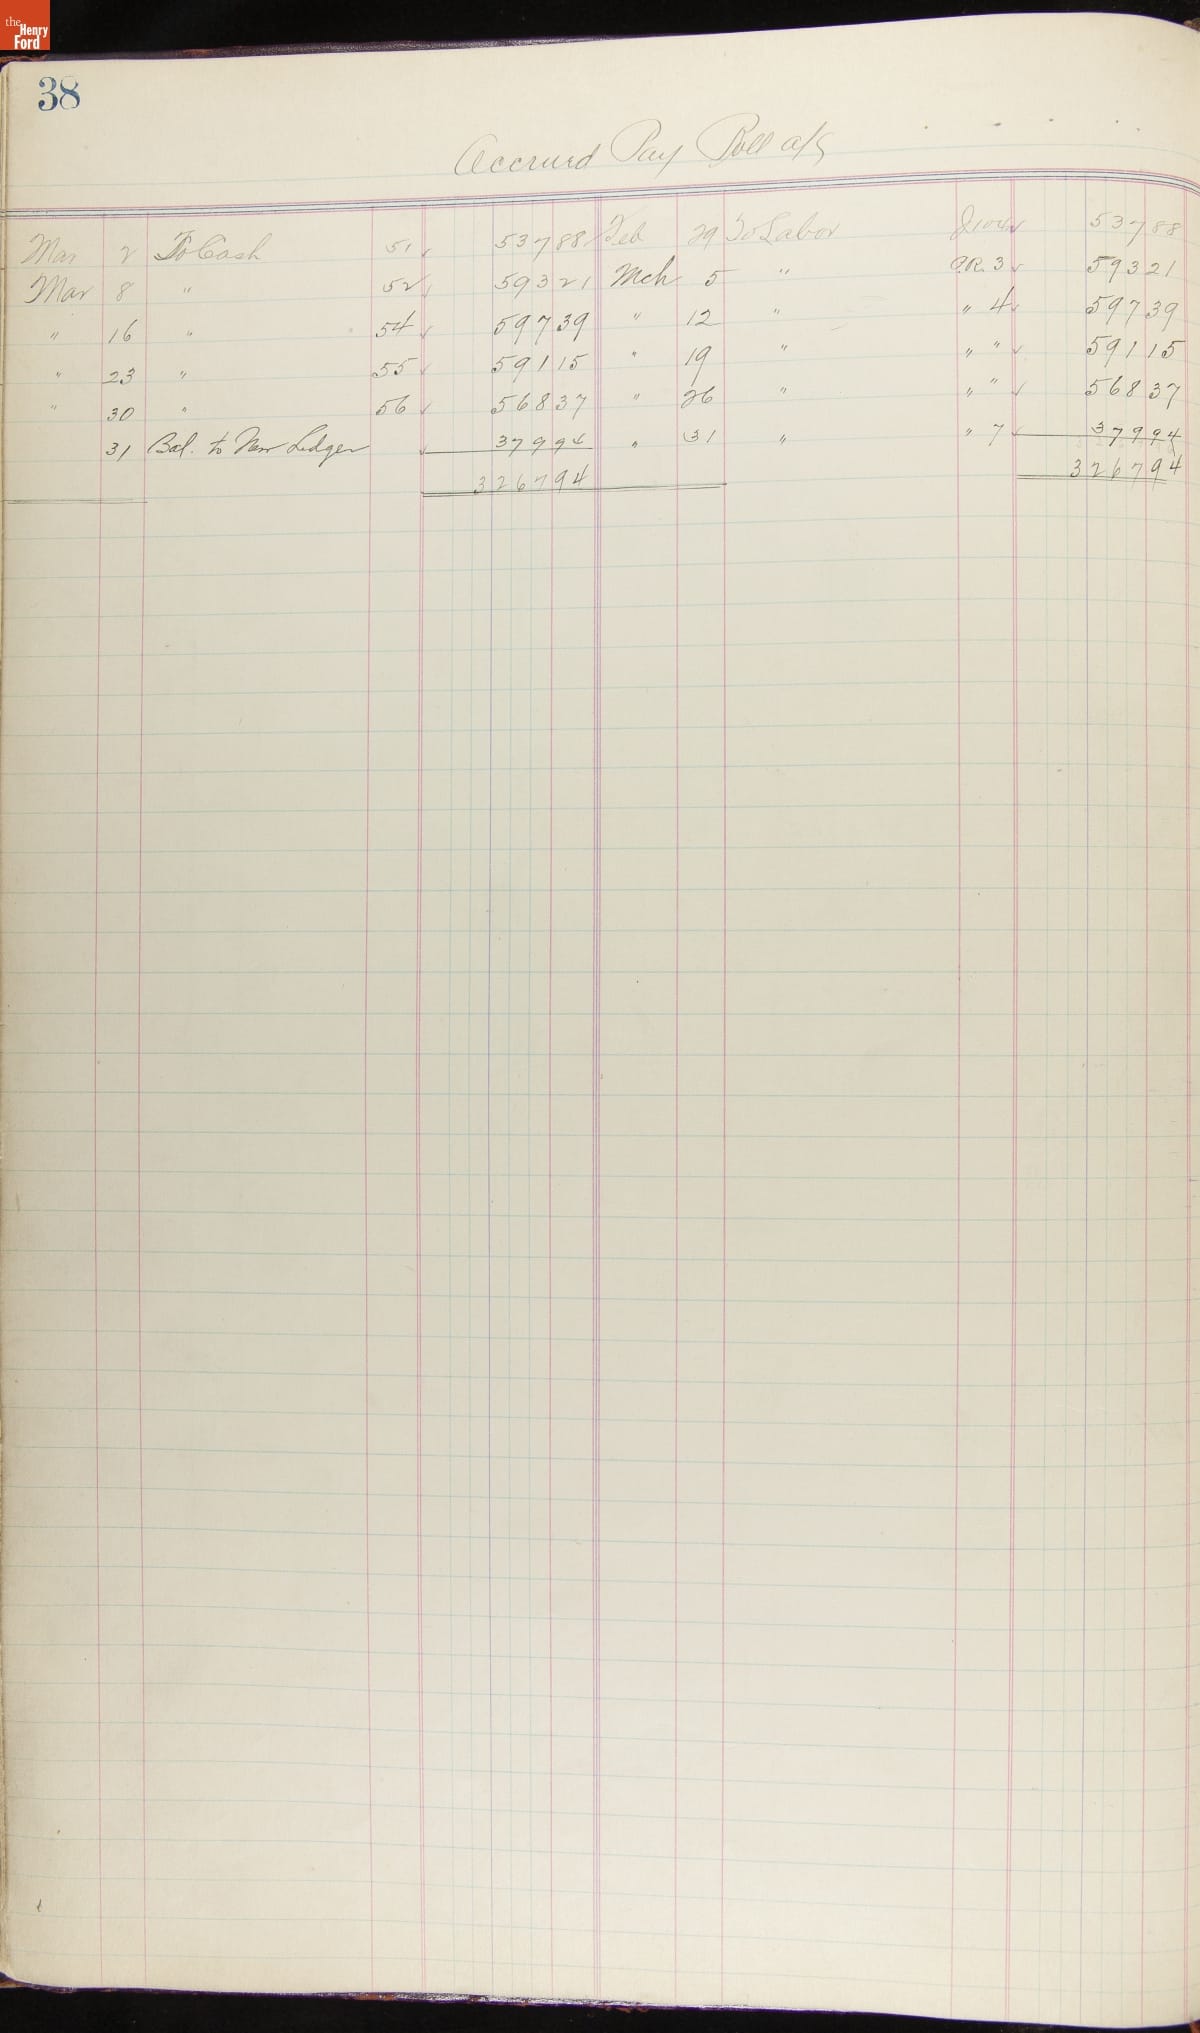 the Henry Ford
38
Accrued Pay Roll a/c
Mar 2 To Cash 51 ✓ 537 88 Feb 29 To Labor J104 ✓ 537 88
Mar 8 " 52 ✓ 593 21 Mch 5 " P.R. 3 ✓ 593 21
" 16 " 54 ✓ 597 39 " 12 " " 4 ✓ 597 39
" 23 " 55 ✓ 591 15 " 19 " " " ✓ 591 15
" 30 " 56 ✓ 568 37 " 26 " " " ✓ 568 37
31 Bal. to New Ledger ✓ 379 94 " 31 " " 7 ✓ 379 94
3267 94 3267 94